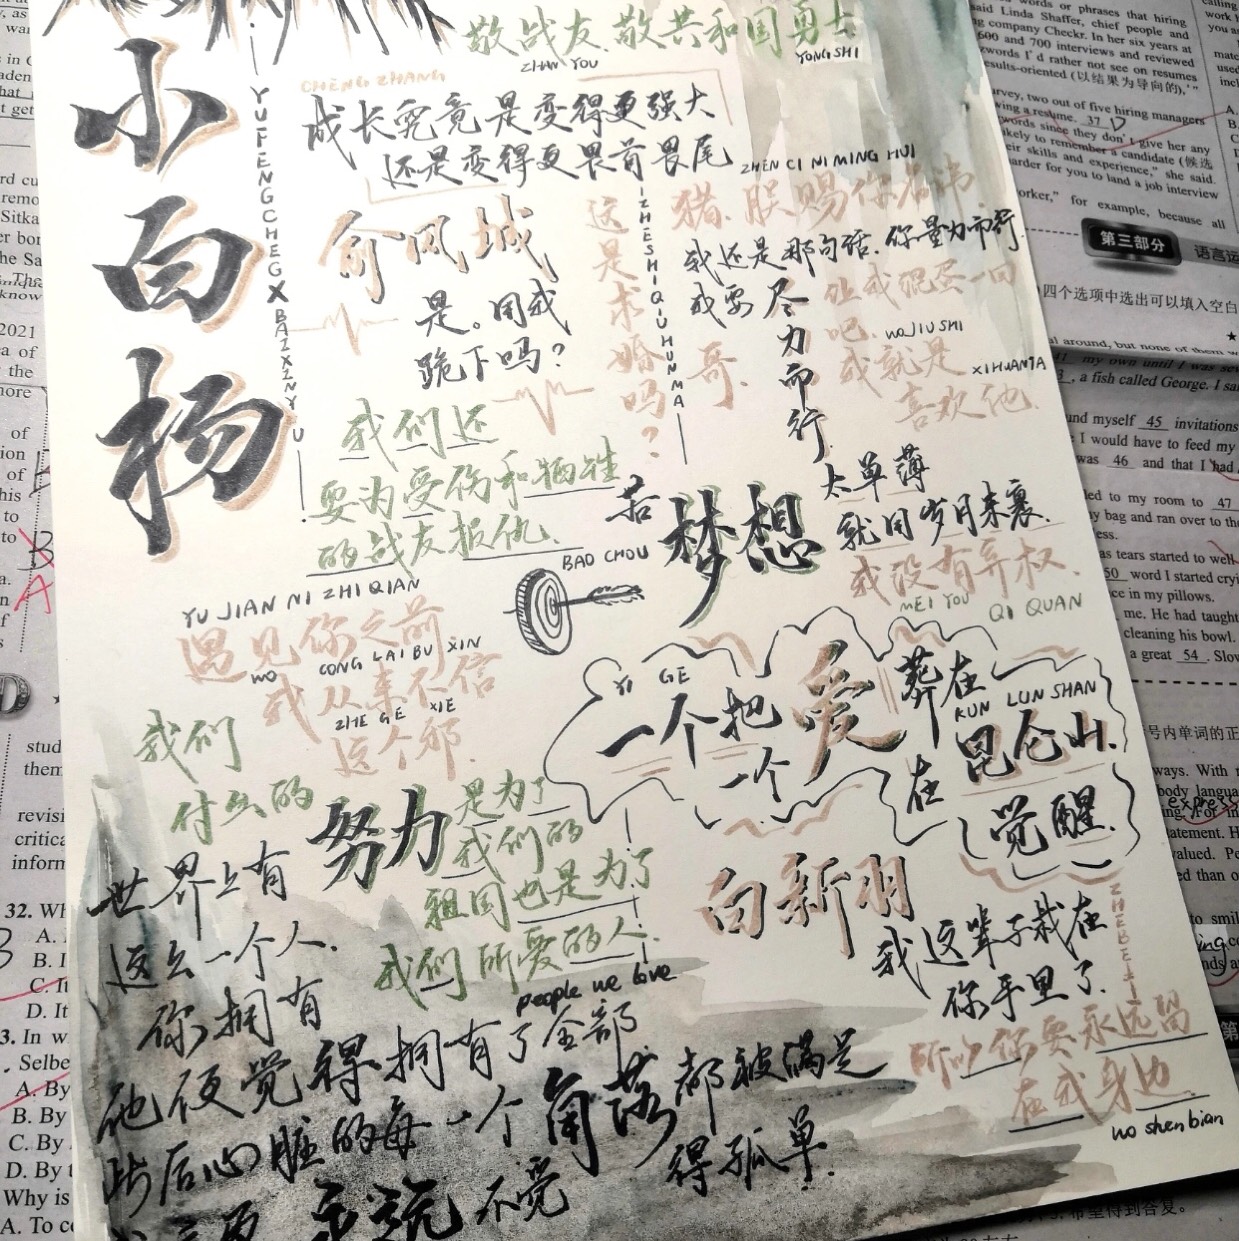 小白杨
YUFENGCHEGXBAIXINYU
敬战友.敬共和国勇士
ZHAN YOU
YONGSHI
CHENG ZHANG
成长究竟是变得更强大
还是变得更畏首畏尾
ZHEN CI NI MING HUI
俞风城
是。用我
跪下吗?
这是求婚吗?
ZHESHIQIUHUNMA
猪.朕赐你名讳
我还是那句话.你量力而行.
我要尽力而行.
让我混蛋一回
吧.
哥.
wo JIU SHI
我就是
XIHUANTA
喜欢他.
我们还
要为受伤和牺牲
的战友报仇.
BAO CHOU
若梦想太单薄
就用岁月来裹.
我没有弃权.
MEI YOU QI QUAN
YU JIAN NI ZHI QIAN
遇见你之前
WO CONG LAI BU XIN
我从来不信
ZHE GE XIE
这个邪.
YI GE
一个把爱葬在
KUN LUN SHAN
昆仑山.
一个在
觉醒.
我们
什么的努力是为了
我们的
祖国也是为了
我们所爱的人.
people we love
白新羽
我这辈子栽在
你手里了.
ZHEBEIZI
所以你要永远留
在我身边.
wo shen bian
世界上有
这么一个人.
你拥有
他便觉得拥有了全部
此后心脏的每一个角落都被满足
不觉得孤单.
said Linda Shaffer, chief people and
company Checkr. In her six years at
600 and 700 interviews and reviewed
words I'd rather not see on resumes
results-oriented (以结果为导向的),"
two out of five hiring managers
a resume. 37 D
words since they don't give her any
likely to remember a candidate (候选
their skills and experience," she said.
harder for you to land a job interview
for example, because all
第三部分
四个选项中选出可以填入空白
around, but none of them
my own until I was
, a fish called George. I
myself 45 invitations
I would have to feed my
was 46 and that I had
to my room to 47
my bag and ran over to the
as tears started to well
50 word I started
in my pillows.
me. He had taught
cleaning his bowl.
a great 54 . Slow
2021
32. Wh
B
A
D
stud
them
revisi
critica
inform
A.
B. I
C. It
D. It
3. In w
Selbe
A. By
B. By
C. By
D. By
Why is
A. To